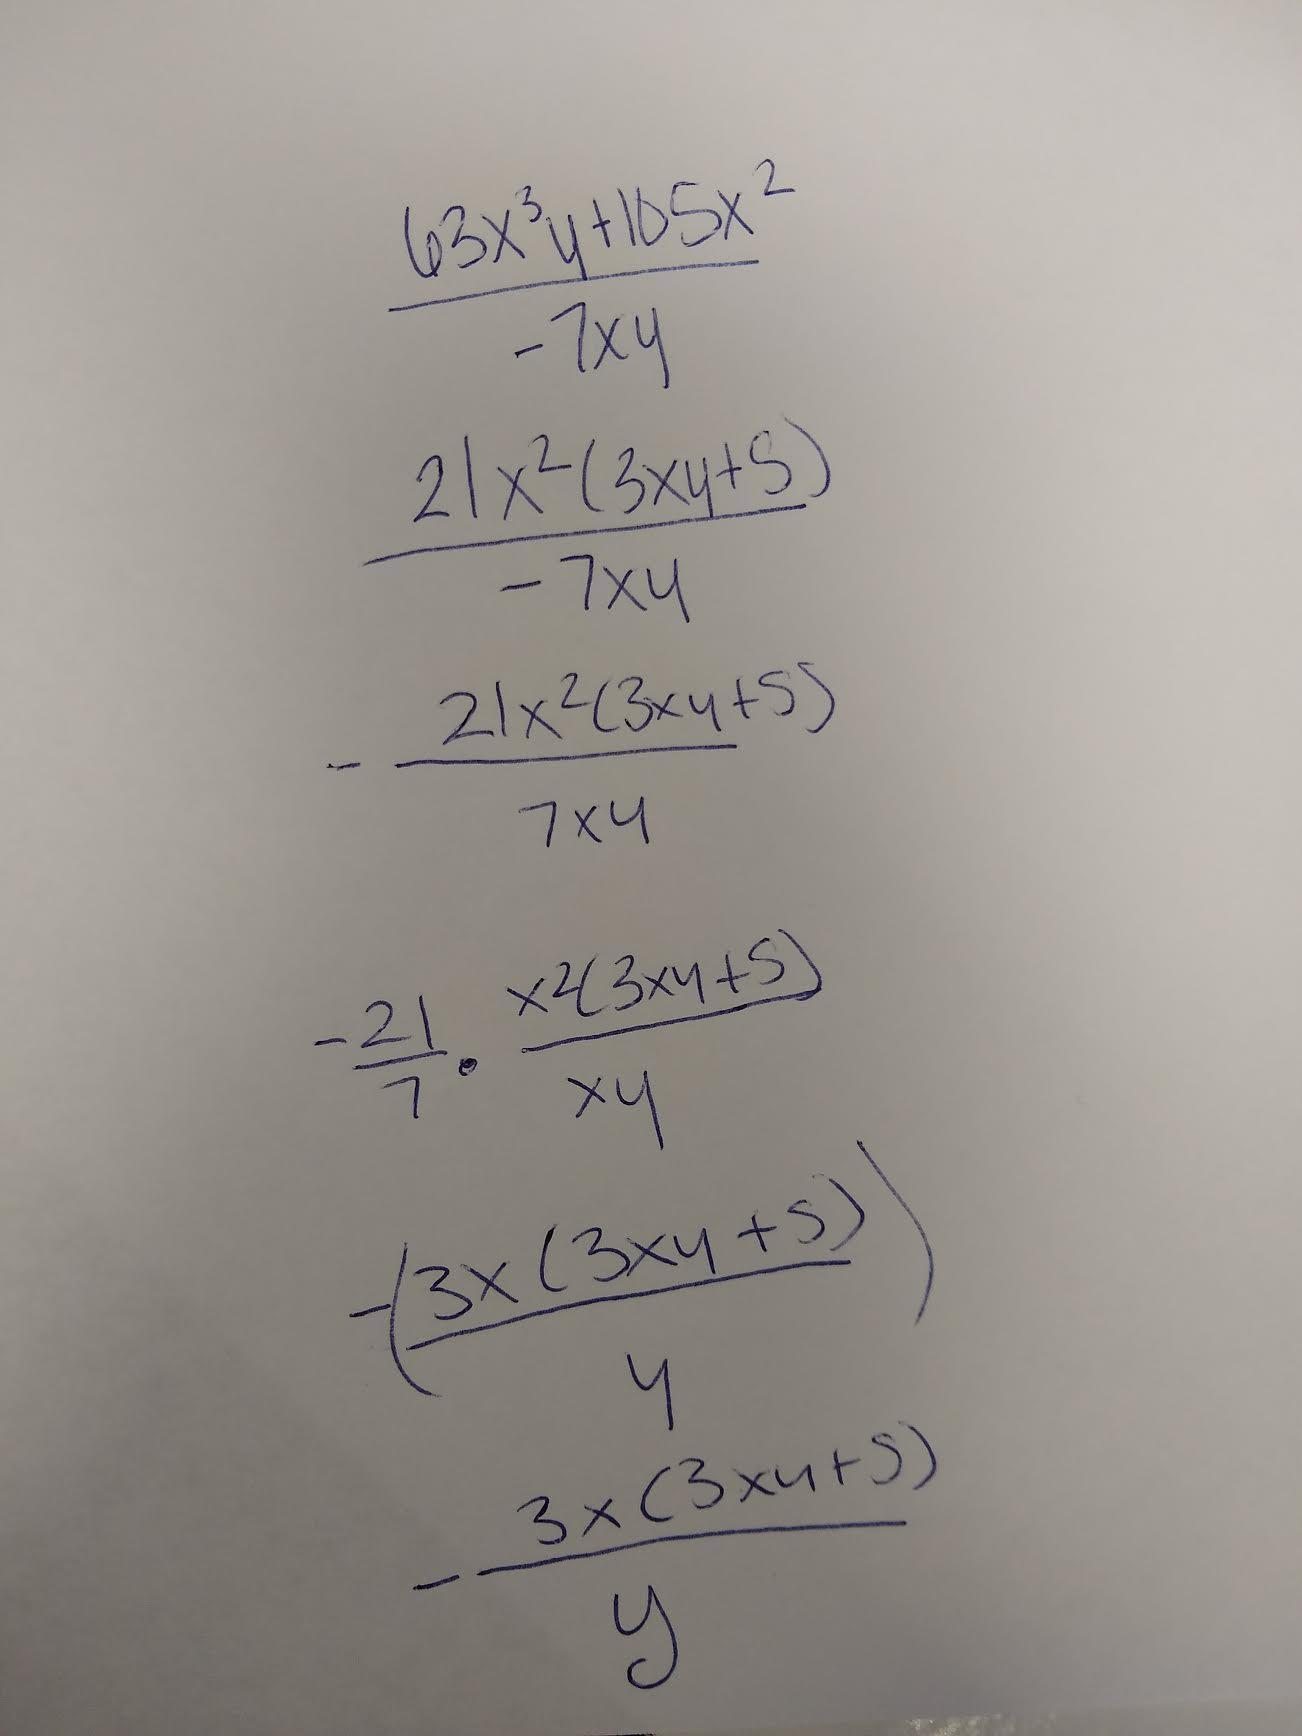 63x³y+105x²
-7xy
21x²(3xy+5)
-7xy
- 21x²(3xy+5)
7xy
-21/7 · x²(3xy+5)/xy
-(3x(3xy+5)/y)
- 3x(3xy+5)
y